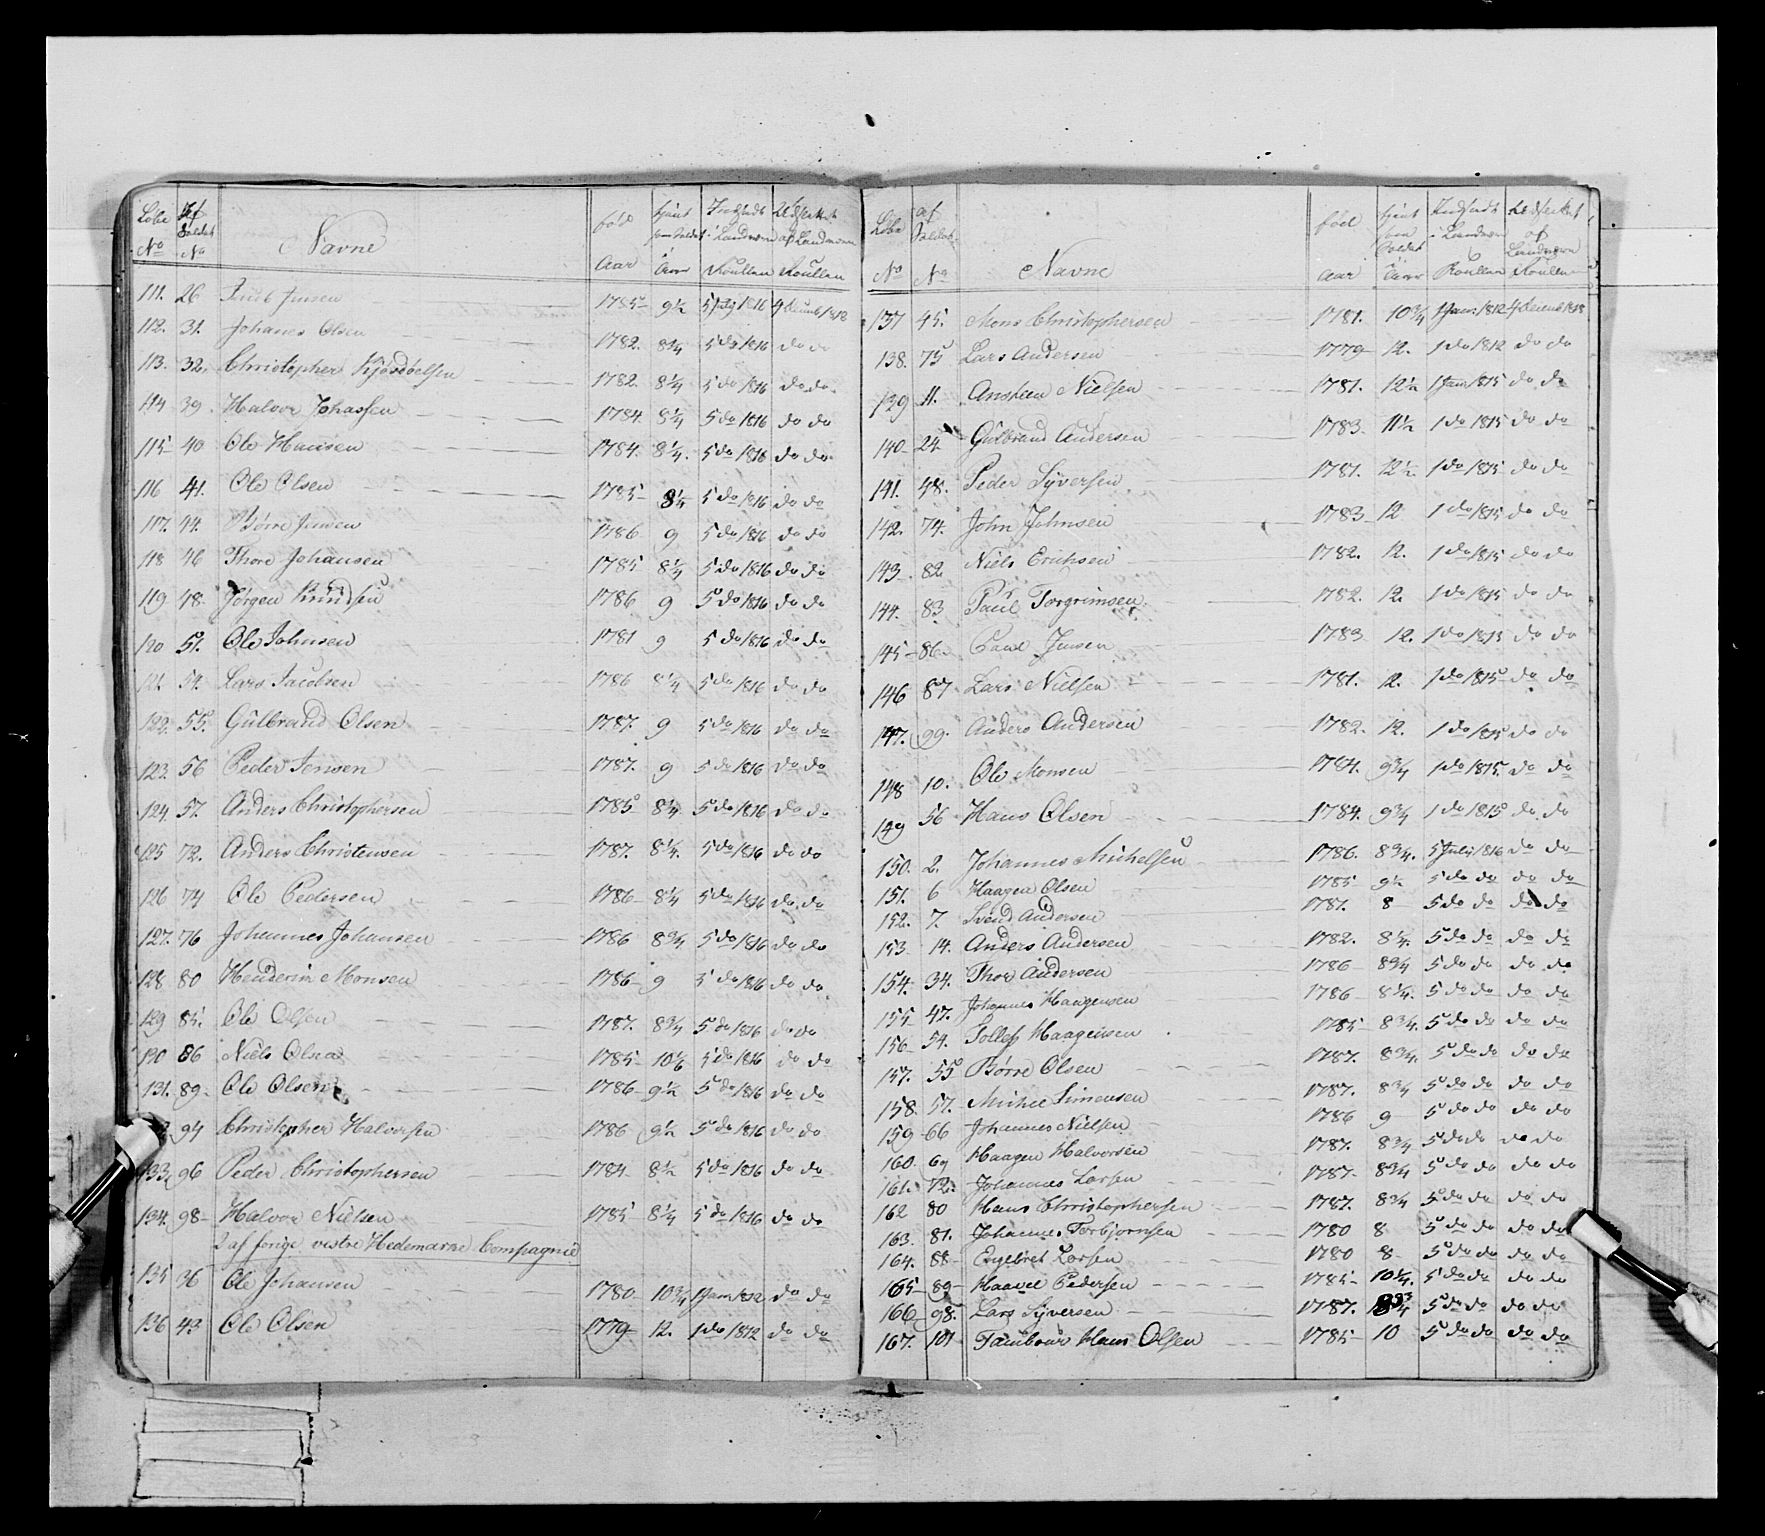 Løbe No | Af Soldat No | Navne | fød Aar | tjent som Soldat Aar | Indsadt i Landværn Roullen | Udslettet af Landværn Roullen
111. 26 Jensen 1785 9½ 5 July 1816 4 Decemb 1818
112. 31. Johanes Olsen 1782. 8¼ 5 do 1816 do do
113. 32. Christopher 1782. 8¼ 5 do 1816 do do
114 39. Halvor Johassen 1784 8¼ 5 do 1816 do do
115 40 Ole Hansen 1784. 8¼. 5 do 1816 do do
116 41. Ole Olsen 1785 8¼ 5 do 1816 do do
117. 44. Børre Jensen 1786 9 5 do 1816 do do
118 46 Thore Johansen 1785 8¼ 5 do 1816 do do
119 48. Jørgen Knudsen 1786 9 5 do 1816 do do
120 51. Ole Johnsen 1781 9 5 do 1816 do do
121. 54. Lars Jacobsen 1786 8¼ 5 do 1816 do do
122. 55. Gulbrand Olsen 1787. 9 5 do 1816 do do
123. 56 Peder Jensen 1787. 9 5 do 1816 do do
124. 57. Anders Christophersen 1785 8¼ 5 do 1816 do do
125 72. Anders Christensen 1787. 8¼. 5 do 1816 do do
126 74 Ole Pedersen 1786 8¼ 5 do 1816 do do
127. 76 Johannes Johansen 1786 8¾ 5 do 1816 do do
128 80 Henderich Monsen 1786 9 5 do 1816 do do
129 85. Ole Olsen 1787. 8¾ 5 do 1816 do do
130 86 Niels Olsen 1785 5 do 1816 do do
131. 89. Ole Olsen 1786 9½ 5 do 1816 do do
94 Christopher Halvorsen 1786 9½ 5 do 1816 do do
133. 96 Peder Christophersen 1784 8½ 5 do 1816 do do
134. 98 Halvor Nielsen 1785 8¼ 5 do 1816 do do
2 af forige vestre Hedemarne Compagnie
135 36 Ole Johansen 1780 10¾ 1 Janr 1812 do do
136 43 Ole Olsen 1779 12. 1 do 1812 do do
Løbe No | af Soldat No | Navne | fød aar | tjent som Soldat i aar | Indsadt i Landværn Roullen | Udslettet af Landværn Roullen
137 45. Mons Christophersen 1781. 10¾ 1 Janr 1812 4 Decemb 1818
138. 75 Lars Andersen 1779 12. 1 do 1812 do do
139 11. Ansteen Nielsen 1781. 12½ 1 Janr 1815 do do
140 24 Gulbrand Andersen 1783. 11½ 1 do 1815 do do
141. 48. Peder Syversen 1781. 12½ 1 do 1815 do do
142. 74. John Johnsen 1783 12 1 do 1815 do do
143 82 Niels Erichsen 1782. 12. 1 do 1815 do do
144. 83 Paul Torgrimsen 1782. 12. 1 do 1815 do do
145 86. Jensen 1783 12. 1 do 1815 do do
146 87 Lars Nielsen 1781. 12. 1 do 1815 do do
147. 99. Anders Andersen 1782. 12. 1 do 1815 do do
148 10. Ole Monsen 1784. 9¾ 1 do 1815. do do
149 56 Hans Olsen 1784. 9¾ 1 do 1815 do do
150. 2. Johannes Michelsen 1786. 8¾. 5 July 1816 do do
151. 6 Haagen Olsen 1785 9½ 5 do do do do
152. 7. Svend Andersen 1787. 8 5 do do do do
153 14. Anders Andersen 1782. 8¼. 5 do do do do
154. 34. Thor Andersen 1786 8¾ 5 do do do do
155 47. Johannes Haagensen 1786 8¼. 5 do do do do
156 54. Tollef Haagensen 1785 8¾. 5 do do do do
157. 55 Børre Olsen 1787. 8¾. 5 do do do do
158. 57. Michel Simensen 1787. 8¾ 5 do do do do
159 66 Johannes Nielsen 1786 9 5 do do do do
160. 69 Haagen Halvorsen 1787. 8¾ 5 do do do do
161. 72. Johannes Larsen 1787. 8¾ 5 do do do do
162 80 Hans Christophersen 1787. 8¾ 5 do do do do
163. 81. Johannes Torbjørnsen 1780 8 5 do do do do
164. 88 Engebret Larsen 1780 8 5 do do do do
165 89 Haavel Pedersen 1785 10¼. 5 do do do do
166 98. Lars Syversen 1787. 8¾ 5 do do do do
167. 101 Tambour Hans Olsen 1785 10 5 do do do do